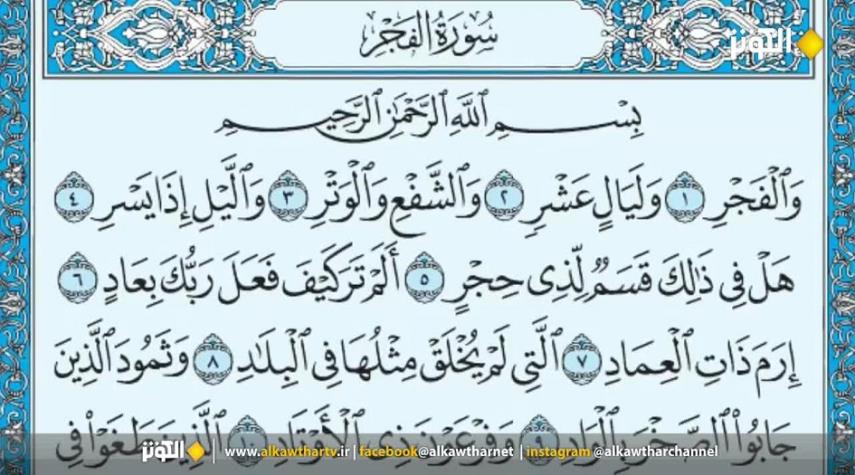 سُورَةُ الفَجْرِ
الكوثر
بِسْمِ ٱللَّهِ ٱلرَّحْمَٰنِ ٱلرَّحِيمِ
وَٱلْفَجْرِ ١ وَلَيَالٍ عَشْرٍ ٢ وَٱلشَّفْعِ وَٱلْوَتْرِ ٣ وَٱلَّيْلِ إِذَا يَسْرِ ٤
هَلْ فِى ذَٰلِكَ قَسَمٌ لِّذِى حِجْرٍ ٥ أَلَمْ تَرَ كَيْفَ فَعَلَ رَبُّكَ بِعَادٍ ٦
إِرَمَ ذَاتِ ٱلْعِمَادِ ٧ ٱلَّتِى لَمْ يُخْلَقْ مِثْلُهَا فِى ٱلْبِلَٰدِ ٨ وَثَمُودَ ٱلَّذِينَ
جَابُوا۟ ٱلصَّخْرَ بِٱلْوَادِ ٩ وَفِرْعَوْنَ ذِى ٱلْأَوْتَادِ ١٠ ٱلَّذِينَ طَغَوْا۟ فِى
الكوثر | www.alkawthartv.ir | facebook@alkawtharnet | instagram@alkawtharchannel